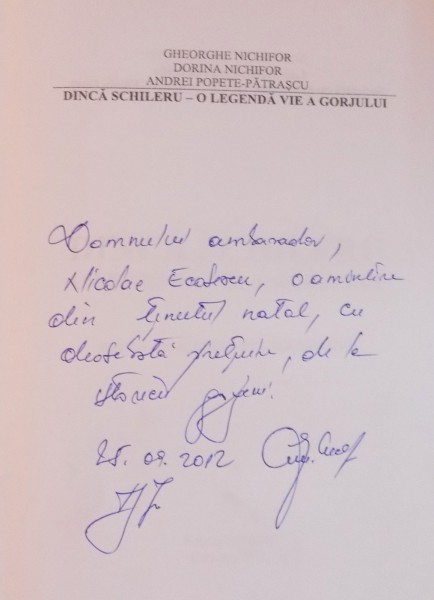 GHEORGHE NICHIFOR
DORINA NICHIFOR
ANDREI POPETE-PĂTRAȘCU
DINCĂ SCHILERU – O LEGENDĂ VIE A GORJULUI
Domnului ambasador,
Nicolae Ecobescu, o amintire
din ținutul natal, cu
deosebită prețuire, de la
istoricii gorjeni.
25.09.2012